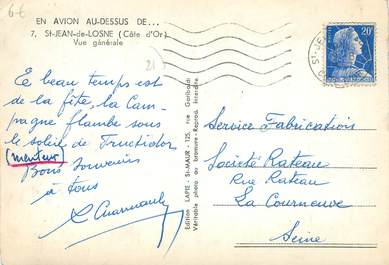 6€
EN AVION AU-DESSUS DE...
7, St-JEAN-de-LOSNE (Côte d'Or)
Vue générale
Le beau temps est
de la fête, la Cam-
pagne flambe sous
le soleil de Fructidor
(menteur)
Bons souvenirs
à tous
Edition LAPIE - St-MAUR - 125, rue Garibaldi
Véritable photo au bromure - Reprod. interdite
20F
Service Fabrication
Société Rateau
Rue Rateau
La Courneuve
Seine